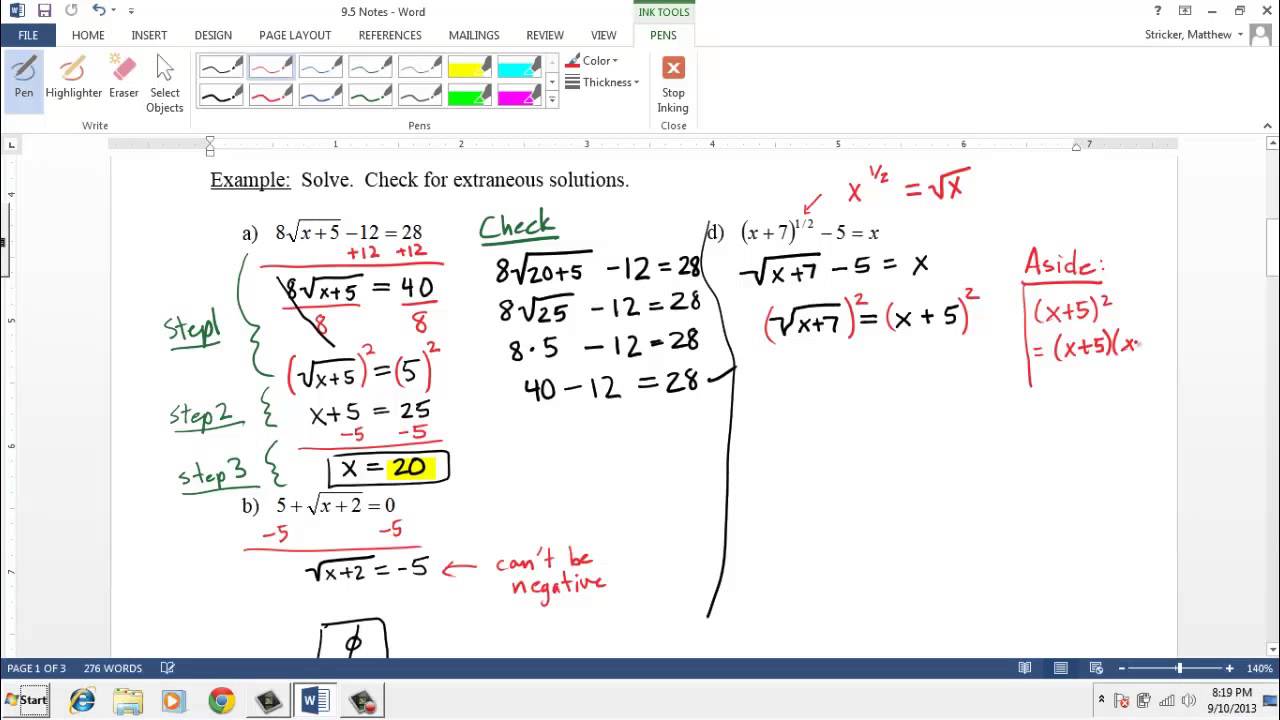 9.5 Notes - Word
INK TOOLS
?
Stricker, Matthew
FILE HOME INSERT DESIGN PAGE LAYOUT REFERENCES MAILINGS REVIEW VIEW PENS
Pen
Highlighter
Eraser
Select Objects
Color
Thickness
Stop Inking
Write
Pens
Close
1 2 3 4 5 6 7
4
5
6
7
Example: Solve. Check for extraneous solutions.
a) 8√(x+5) −12 = 28
+12 +12
8√(x+5) = 40
8 8
(√(x+5))² = (5)²
x+5 = 25
−5 −5
x = 20
step1
step2
step3
b) 5+√(x+2) = 0
−5 −5
√(x+2) = −5
can't be
negative
ϕ
Check
8√(20+5) −12 = 28
8√25 −12 = 28
8·5 −12 = 28
40 −12 = 28 ✓
x^1/2 = √x
d) (x+7)^1/2 − 5 = x
√(x+7) − 5 = x
(√(x+7))² = (x+5)²
Aside:
(x+5)²
= (x+5)(x
PAGE 1 OF 3 276 WORDS
140%
Start
8:19 PM
9/10/2013